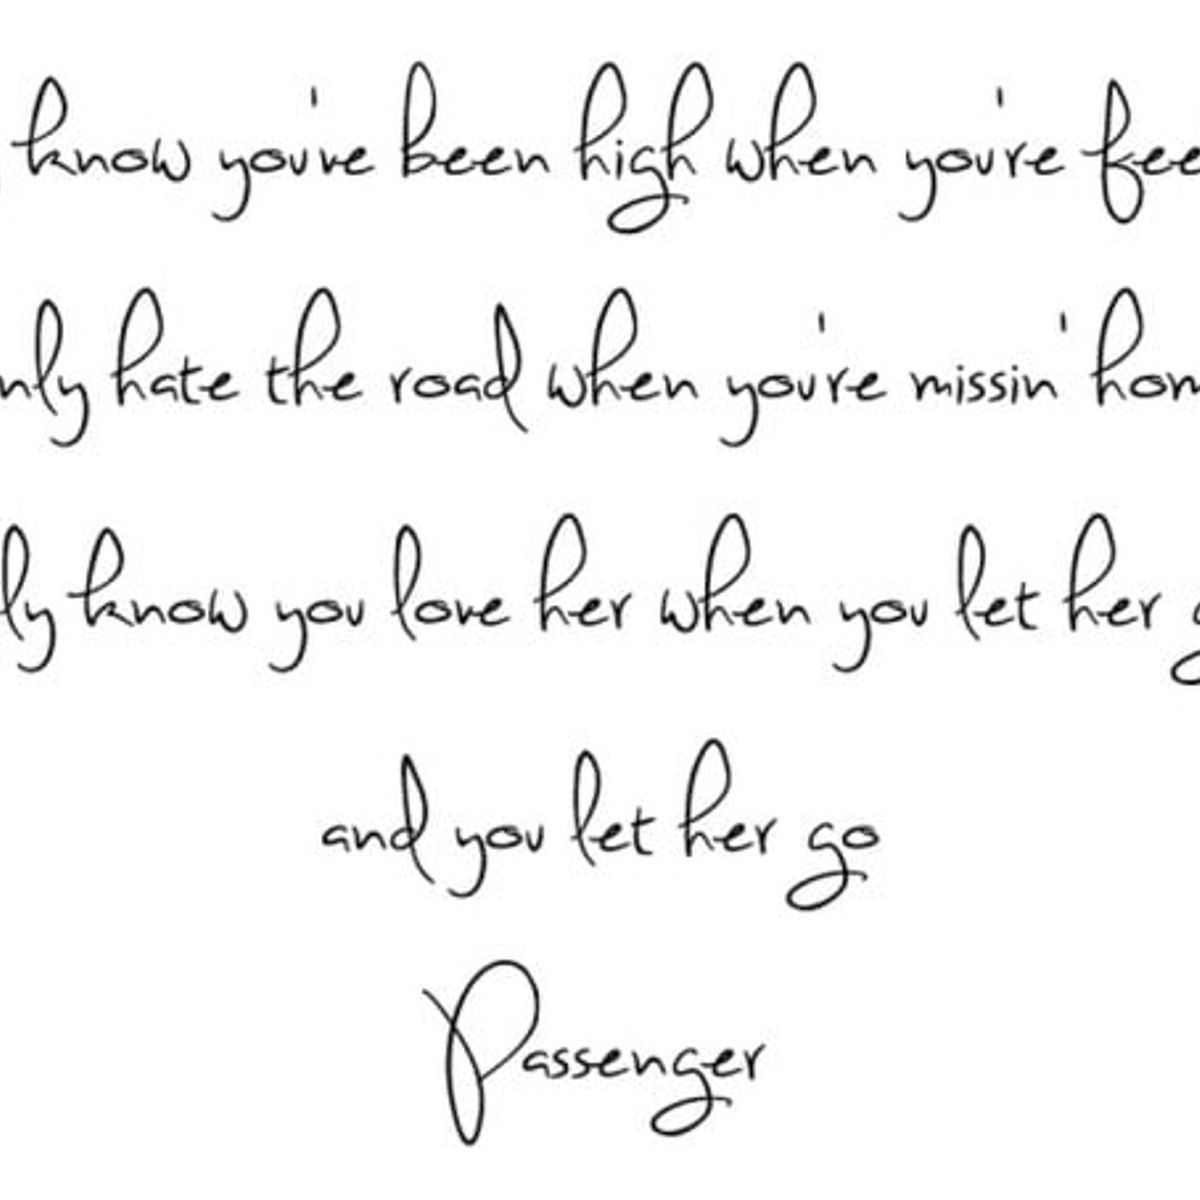 know you've been high when you're fee
nly hate the road when you're missin' hom
ly know you love her when you let her g
and you let her go
Passenger